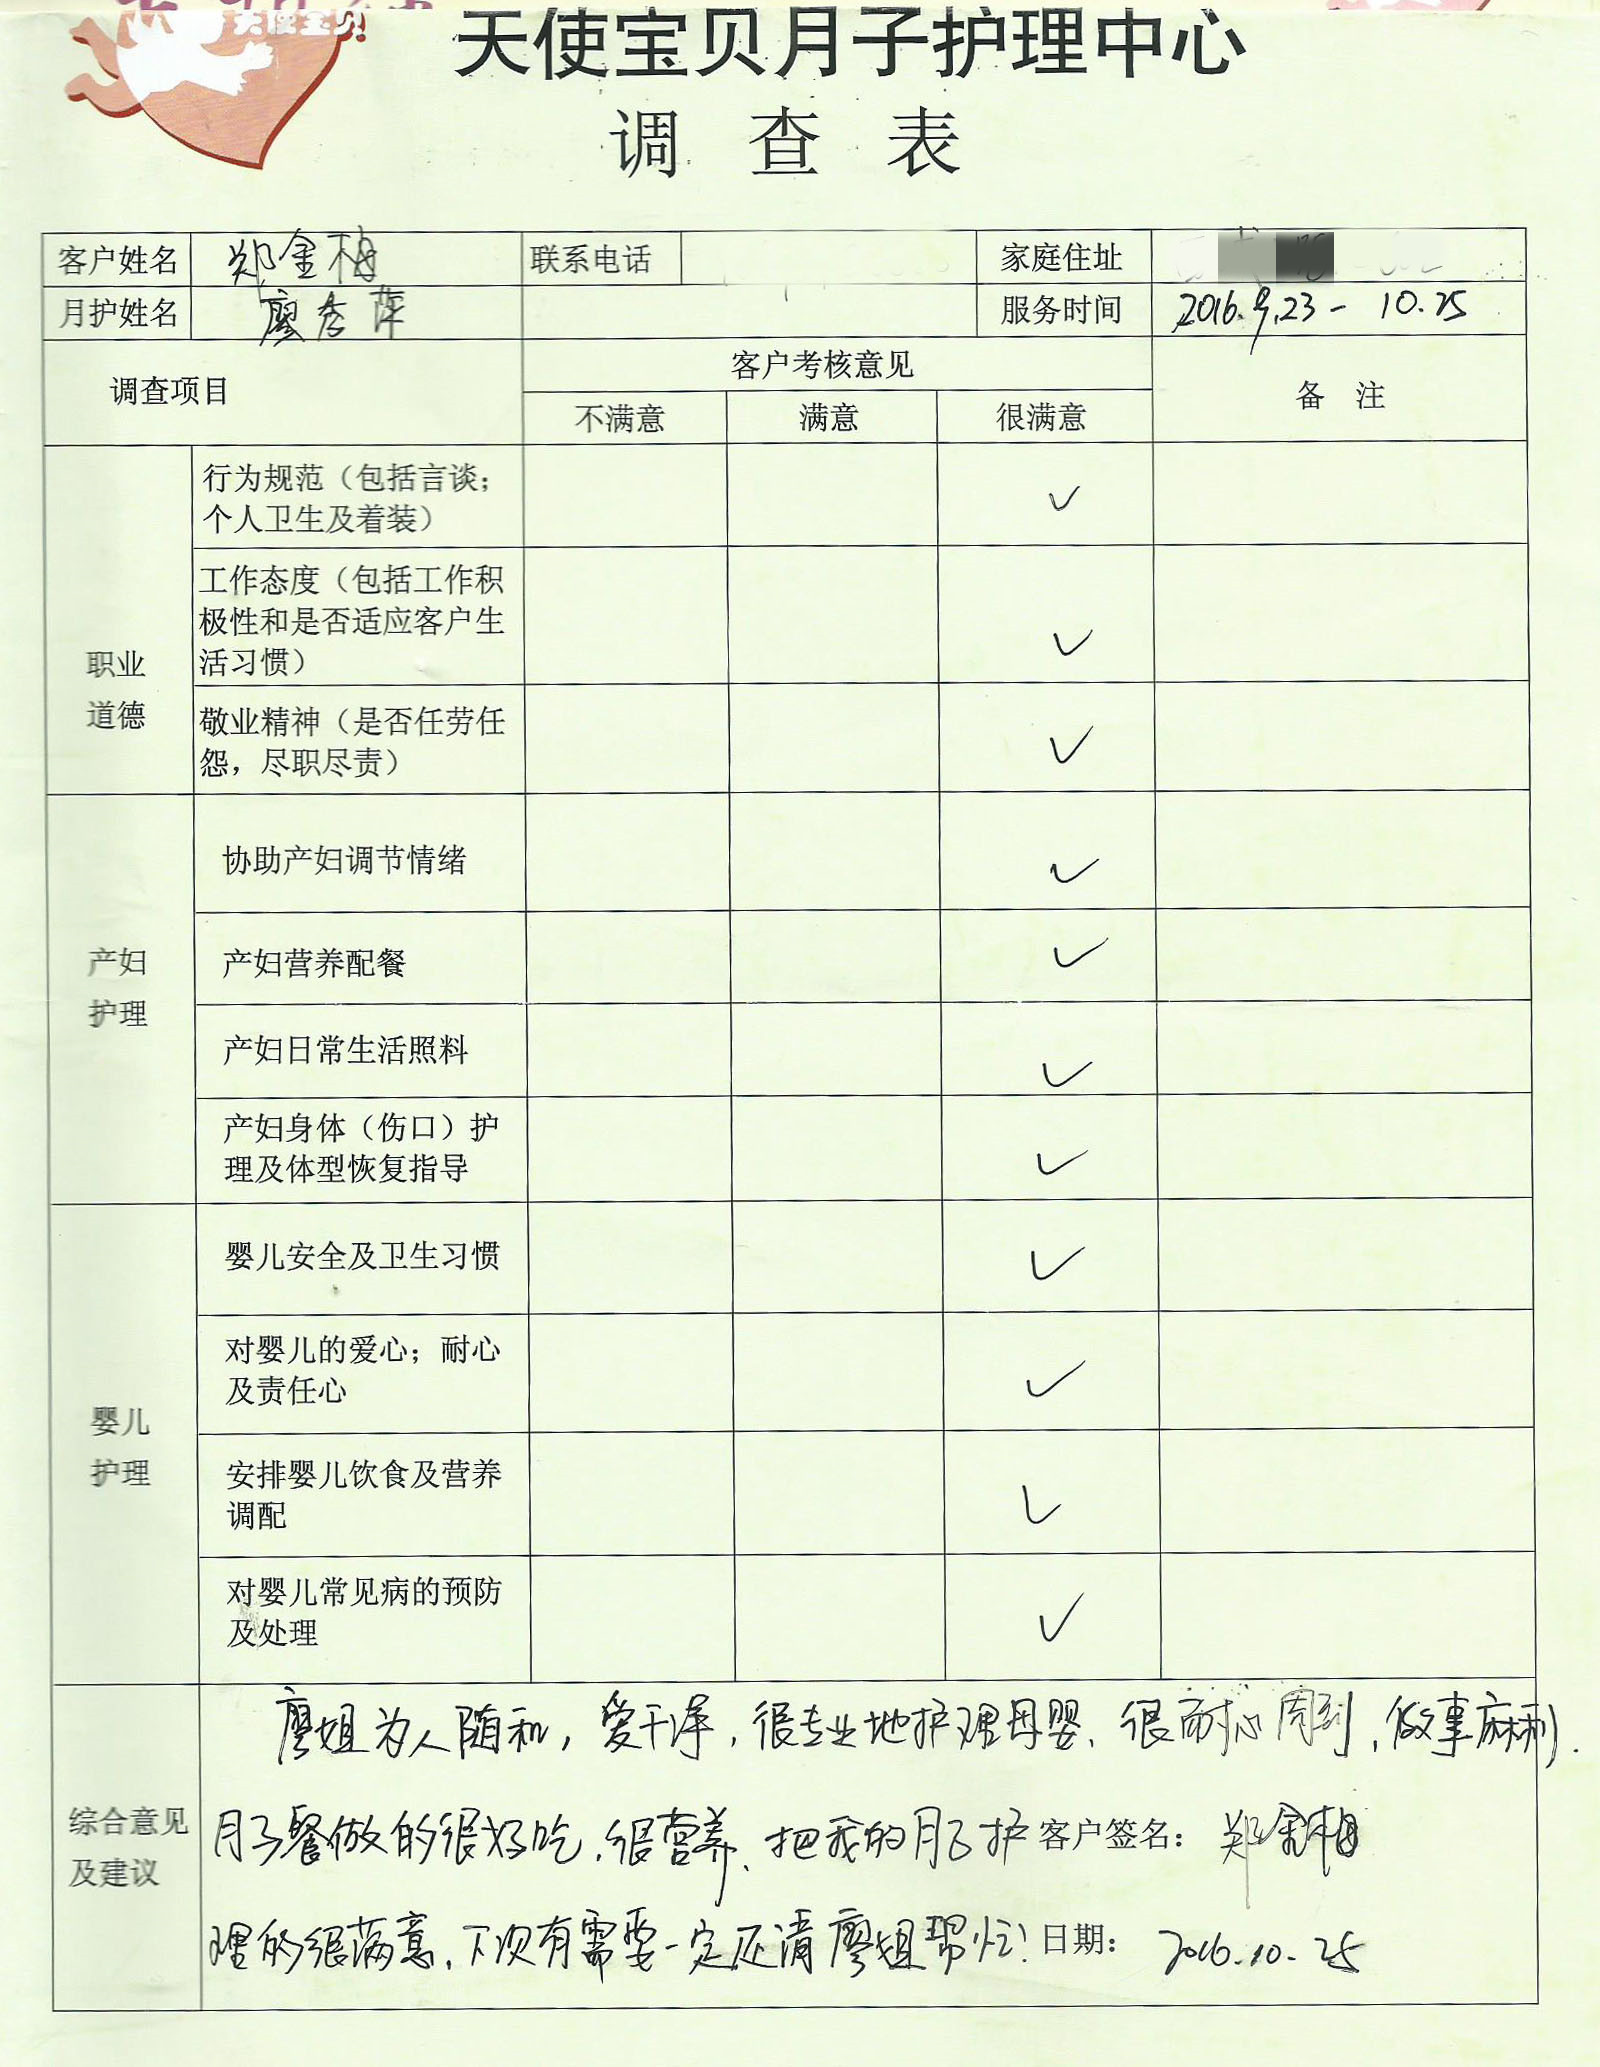 天使宝贝
天使宝贝月子护理中心
调 查 表
客户姓名 郑金梅 联系电话 家庭住址
月护姓名 廖秀萍 服务时间 2016.9.23 - 10.25
调查项目 客户考核意见 备 注
不满意 满意 很满意
职业
道德
行为规范（包括言谈；
个人卫生及着装） ✓
工作态度（包括工作积
极性和是否适应客户生
活习惯） ✓
敬业精神（是否任劳任
怨，尽职尽责） ✓
产妇
护理
协助产妇调节情绪 ✓
产妇营养配餐 ✓
产妇日常生活照料 ✓
产妇身体（伤口）护
理及体型恢复指导 ✓
婴儿
护理
婴儿安全及卫生习惯 ✓
对婴儿的爱心；耐心
及责任心 ✓
安排婴儿饮食及营养
调配 ✓
对婴儿常见病的预防
及处理 ✓
综合意见
及建议
廖姐为人随和，爱干净，很专业地护理母婴、很耐心周到，做事麻利.
月子餐做的很好吃，很营养、把我的月子护 客户签名： 郑金梅
理的很满意，下次有需要一定还请廖姐帮忙！ 日期： 2016.10.25